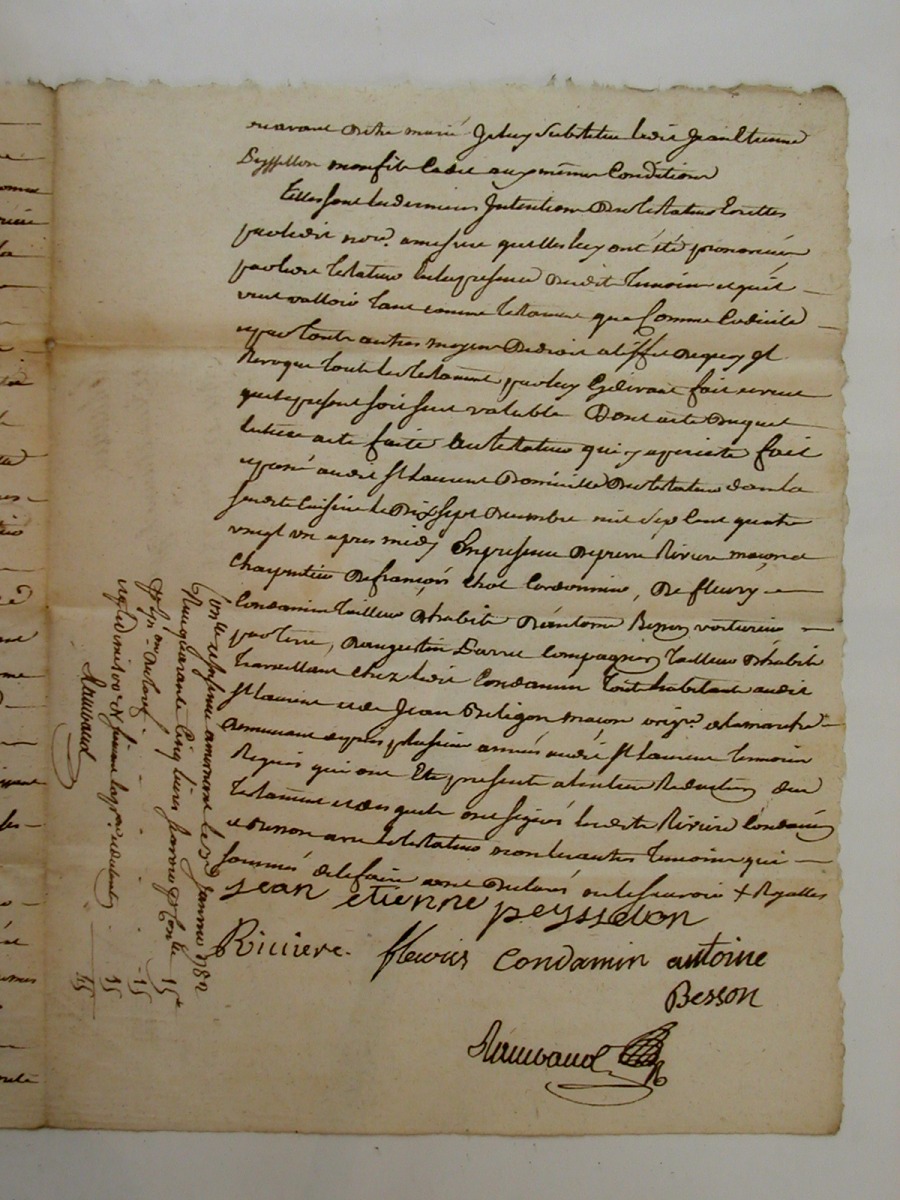 ou avant d'etre marié Je luy substitue ledit Jean Etienne
Peyssellon mon fils Cadet aux memes Conditions
Telles sont les dernieres Intentions du testateur Ecrittes
par ledit nore. a mesure quelles luy ont été prononcées
par ledit testateur en la presence desdits temoins et qu'il
veut valloir tant comme testament que Comme Codicile
et par touts autres moyens de droit a l'effet de quoy Il
Revoque tout les testaments par luy Cy devant fait
que le present soit seul valable Dont acte duquel
lecture a ete faite au testateur qui y a persisté fait
et passé audit St Laurent Domicille du testateur dans la
susdite Cuisine le Dix sept Decembre mil sept Cent quatre
vingt un apres midy En presence de pierre Riviere maçon et
Charpentier de françois Chol Cordonnier, De fleury
Condamin tailleur d'habits d'antoine Besson voiturier
par terre, d'augustin Compagnon tailleur d'habits
travaillant chez ledit Condamin tout habitants audit
St Laurent et de Jean maçon origre. de la marche
demeurant depuis plusieurs années audit St Laurent temoins
Requis qui ont Eté presents a l'entiere Redaction dud
testament et desquels ont signés lesdits Riviere Condamin
et Besson avec le testateur non les autres temoins qui
sommés de le faire ont declarés ne le scavoir + Royalles
jean etienne peysselon
Riviere. fleuries condamin antoine
Besson
Raimbaud
Conllé et Insinué a mornant le 3e Janvier 1782
Reçu quarante Cinq livres pour Contlle 15#
15
15
45
Raimbaud